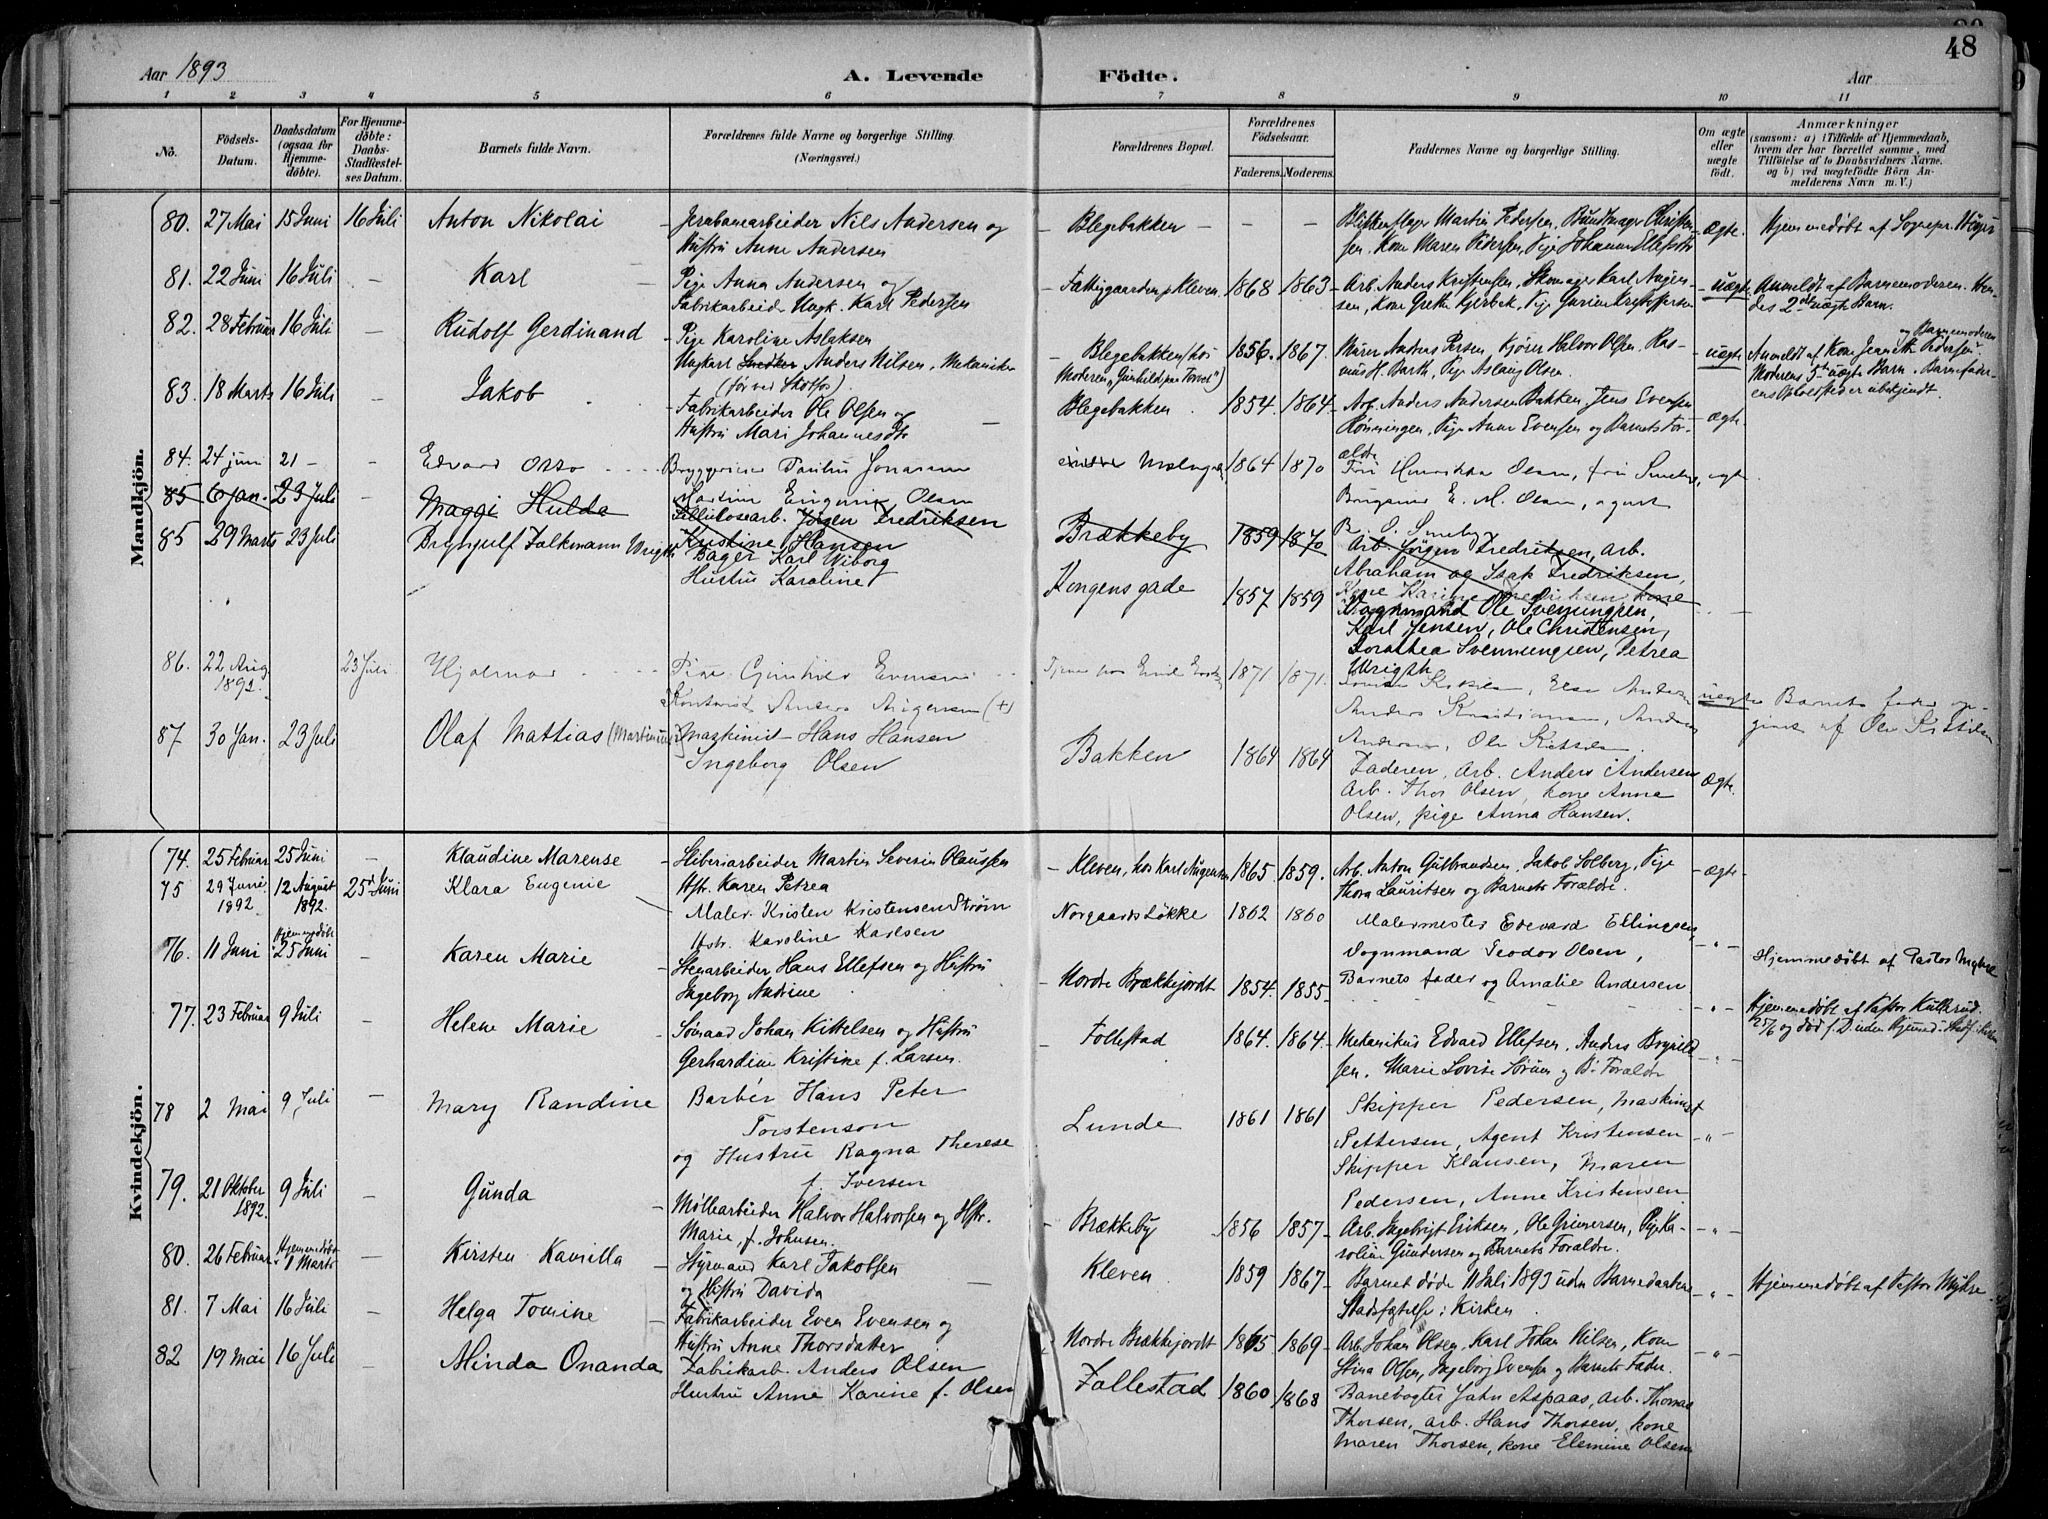 48
Aar 1893
A. Levende
Födte.
Aar
1 2 3 4 5 6 7 8 9 10 11
No.
Födsels-Datum.
Daabsdatum (ogsaa for Hjemme-döbte).
For Hjemme-döbte: Daabs-Stadfæstel-ses Datum.
Barnets fulde Navn.
Forældrenes fulde Navne og borgerlige Stilling. (Næringsvei.)
Forældrenes Bopæl.
Forældrenes Födselsaar.
Faderens. Moderens.
Faddernes Navne og borgerlige Stilling.
Om ægte eller uægte födt.
Anmærkninger
(saasom: a) i Tilfælde af Hjemmedaab, hvem der har forrettet samme, med Tilföielse af to Daabsvidners Navne. og b) ved uægtefödte Börn An-melderens Navn m. V.)
Mandkjön.
80. 27 Mai 15 Juni 16 Juli Anton Nikolai
Jernbanearbeider Nils Andersen og
Hustru Anne Andersen
Blegebakken – – –
Martin Pedersen, Bundtmager Christen-
sen, Kone Maren Pedersen, Pige Johanne Ellefsdtr
ægte.
Hjemmedøbt af Sognepr.
81. 22 Juni 16 Juli – Karl
Pige Anna Andersen og
Fabrikarbeider Ungk. Karl Pedersen
Fattiggaarden p. Kleven. 1868 1863
Arb. Anders Kristensen, Skomager Karl Augen-
sen, Kone Grethe Gjerbek, Pige Gurine Kristoffersen
uægte
Anmeldt af Barnemoderen. Hen-
des 2det uægte Barn.
82. 28 Februar 16 Juli – Rudolf Gerdinand
Pige Karoline Aslaksen
Ungkarl Anders Nilsen, Mekaniker
(før ved Skotfos).
Blegebakken (hos
Moderen, "Gunhild paa Torvet") 1856. 1867.
Murer Andreas Persen, Kjører Halvor Olsen, Ras-
mus H. Barth, Pige Aslaug Olsen.
uægte
og Barnemoderen
Anmeldt af Kone Jeanette Pedersen.
Moderens 5te uægte Barn. Barnefader-
ens Opholdssted er ubekjendt.
83. 18 Marts 16 Juli – Jakob
Fabrikarbeider Ole Olsen og
Hustru Mari Johannesdtr
Blegebakken. 1854. 1864
Arb. Anders Andersen Bakken, Jens Evensen
Rønningen, Pige Anne Evensen og Barnets For-
ældre
ægte.
84. 24 juni 21 – – Edvard Otto
Bryggerieier Paulus Jonassen
Martine Eugenie Olsen
1864 1870
Olsen, fru Smeby,
E. M. Olsen, August
Smeby
ægte.
85 6 jan. 23 Juli – Maggi Hulda
Cellulosearb. Jørgen Fredriksen
Kristine Hansen
Brækkeby 1859 1870
Arb. Jørgen Fredriksen, Arb.
Abraham og Isak Fredriksen,
Kone Karine Fredriksen kone
85 29 Marts 23 Juli Brynjulf Falkmann Wrigth
Bager Karl Wiborg
Hustru Karoline
Kongens gade 1857 1859
Vognmand Ole Svennungsen,
Karl Jensen, Ole Christensen,
Dorothea Svennungsen, Petrea
Wrigth
86. 22 Aug 1892. 23 Juli Hjalmar
Pige Gunhild Evensen
Kontorist Anders Augensen (+)
Tjener hos Emil 1871 1871.
Else Andersen
Anders Kristiansen, Anders
Andersen, Ole Kittilsen.
uægte
Barnets fader op-
gives af Ole Kittilsen
87 30 Jan. 23 Juli Olaf Mattias (Martinius)
Maskinist Hans Hansen
Ingeborg Olsen
Bakken 1864 1864
Faderen, Arb. Anders Andersen
Arb. Thor Olsen, kone Anna
Olsen, pige Anna Hansen.
Ægte.
Kvindekjön.
74. 25 Februar 25 Juni – Klaudine Marense
Sliberiarbeider Martin Severin Olaussen
Hstr. Karen Petrea
Kleven, hos Karl Augensen 1865 1859.
Arb. Anton Gulbrandsen, Jakob Solberg, Pige
Thora Lauritsen og Barnets Forældre.
ægte
75 29 Juni 1892 12 August 1892. 25d Juni Klara Eugenie
Maler Kristen Kristensen Strøm
Hstr. Karoline Karlsen
Norgaards Løkke 1862 1860
Malermester Edevard Ellingsen,
Vognmand Teodor Olsen,
Barnets fader og Amalie Andersen
– " –
76. 11 Juni Hjemmedøbt 25 Juni Karen Marie
Stenarbeider Hans Ellefsen og Hustru
Ingeborg Andrine
Nordre Brækkejordt 1854. 1855
– " –
Hjemmedøbt af Pastor Myhre
77. 23 Februar 9 Juli Helene Marie
Sømand Johan Kittelsen og Hustru
Gerhardine Kristine f. Larsen.
Follestad 1864. 1864.
Mekanikus Edvard Ellefsen, Anders Boyesen
Marie Lovise Sørum og B. Forældre
– " –
Hjemmedøbt af Pastor Kullerud
25/6 og død
78 2 Mai 9 Juli – Mary Randine
Barbér Hans Peter
Torstenson
og Hustru Ragna Therese
f. Iversen
Lunde 1861 1861
Skipper Pedersen, Maskinist
Pettersen, Agent Kristensen
Skipper Klausen, Maren
Pedersen, Anne Kristensen
– " –
79. 21 Oktober 1892. 9 Juli – Gunda
Møllearbeider Halvor Halvorsen og Hstr.
Marie, f. Johnsen.
Brækkeby 1856 1857
Arb. Ingebrigt Eriksen, Ole Grimersen, Pige Ka-
roline Gundersen og Barnets Forældre.
– " –
80. 26 Februar Hjemmedøbt 1 Marts – Kirsten Kamilla
Styrmand Karl Jakobsen
og Hustru Davida
Kleven. 1859 1867
Barnet døde 11 Juli 1893 uden Barnedaabens
Stadfæstelse i Kirken.
– " –
Hjemmedøbt af Pastor Myhre.
81. 7 Mai 16 Juli – Helga Tomine
Fabrikarbeider Even Evensen og
Hustru Anne Thorsdatter
Nordre Brækkejordt 1865 1869
Arb. Johan Olsen, Karl Johan Nilsen, Kone
Stina Olsen, Ingeborg Evensen og Barnets Fader.
– " –
82 19 Mai 16 Juli – Alinda Onanda
Fabrikarb. Anders Olsen
Hustru Anne Karine f. Olsen
Follestad 1860 1868
Banevogter Jahn Aspaas, Arb. Thomas
Thorsen, arb. Hans Thorsen, kone
Maren Thorsen, kone Elemine Olsen